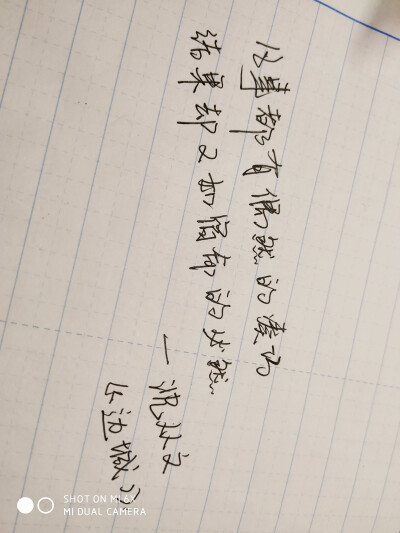 凡事都有偶然的凑巧
结果却又如宿命的必然
—沈从文
《边城》
SHOT ON MI 6X
MI DUAL CAMERA